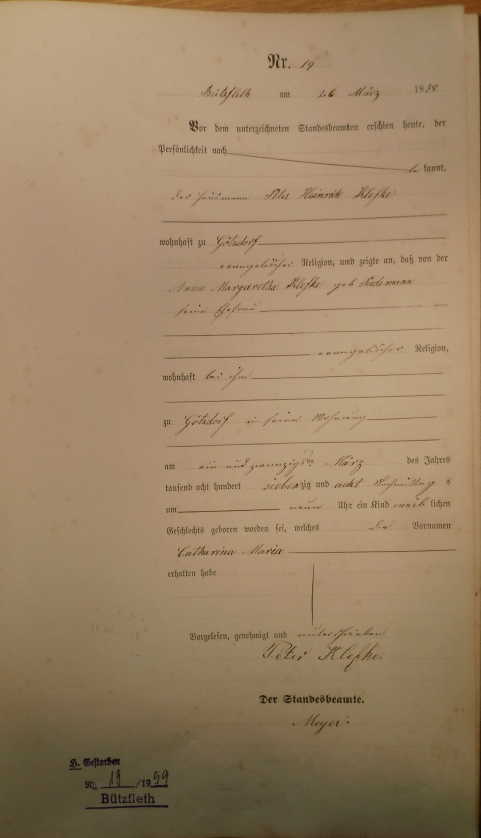 Nr. 19
Bützfleth am 26 März 1878
Vor dem unterzeichneten Standesbeamten erschien heute, der
Persönlichkeit nach
be kannt,
der Hausmann Peter Heinrich Klefke
wohnhaft zu Götzdorf
evangelischer Religion, und zeigte an, daß von der
Anna Margaretha Klefke geb
seine Ehefrau
evangelischer Religion,
wohnhaft bei ihm
zu Götzdorf in seiner Wohnung
am ein und zwanzigsten März des Jahres
tausend acht hundert siebenzig und acht Nachmittags
um neun Uhr ein Kind weib lichen
Geschlechts geboren worden sei, welches die Vornamen
Catharina Maria
erhalten habe
Vorgelesen, genehmigt und unterschrieben
Peter Klefke.
Der Standesbeamte.
Meyer.
H. Gestorben
Nr. 13 /1959
Bützfleth